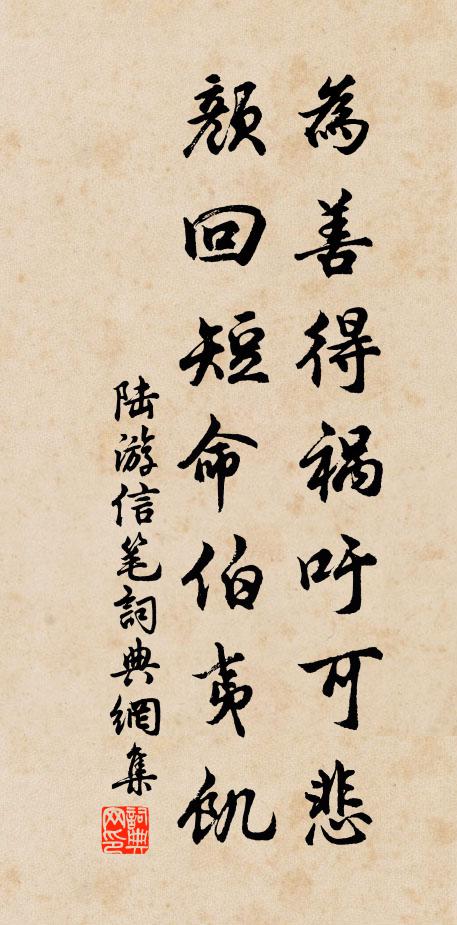 為善得禍吁可悲
顏回短命伯夷飢
陆游信笔詞典網集
詞典网印